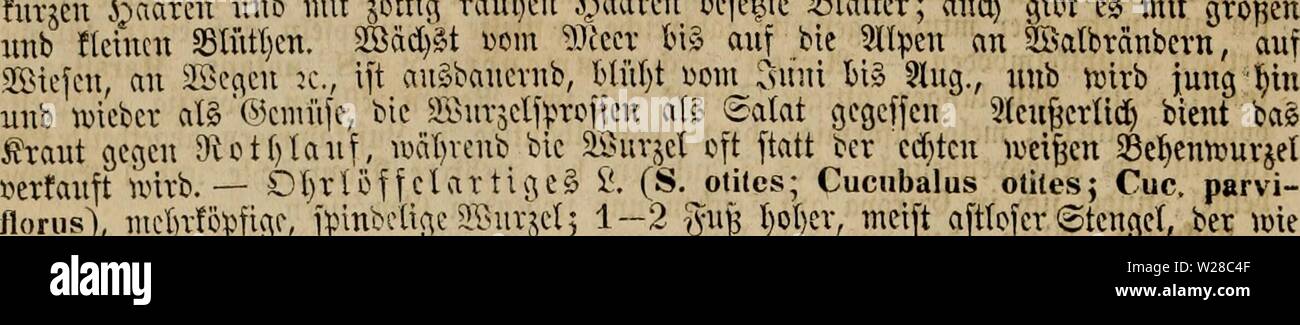 kurzen Haaren und mit zottig rauhen Haaren besetzte Blätter; auch gibt es mit großen
und kleinen Blüthen. Wächst vom Meer bis auf die Alpen an Waldrändern, auf
Wiesen, an Wegen ꝛc., ist ausdauernd, blüht vom Juni bis Aug., und wird jung hin
und wieder als Gemüse, die Wurzelsprossen als Salat gegessen. Aeußerlich dient das
Kraut gegen Rothlauf, während die Wurzel oft statt der echten weißen Behenwurzel
verkauft wird. — Ohrlöffelartiges L. (S. otites; Cucubalus otites; Cuc. parvi-
florus), mehrköpfige, spindelige Wurzel; 1—2 Fuß hoher, meist astloser Stengel, der wie
alamy
Image ID: W28C4F
www.alamy.com